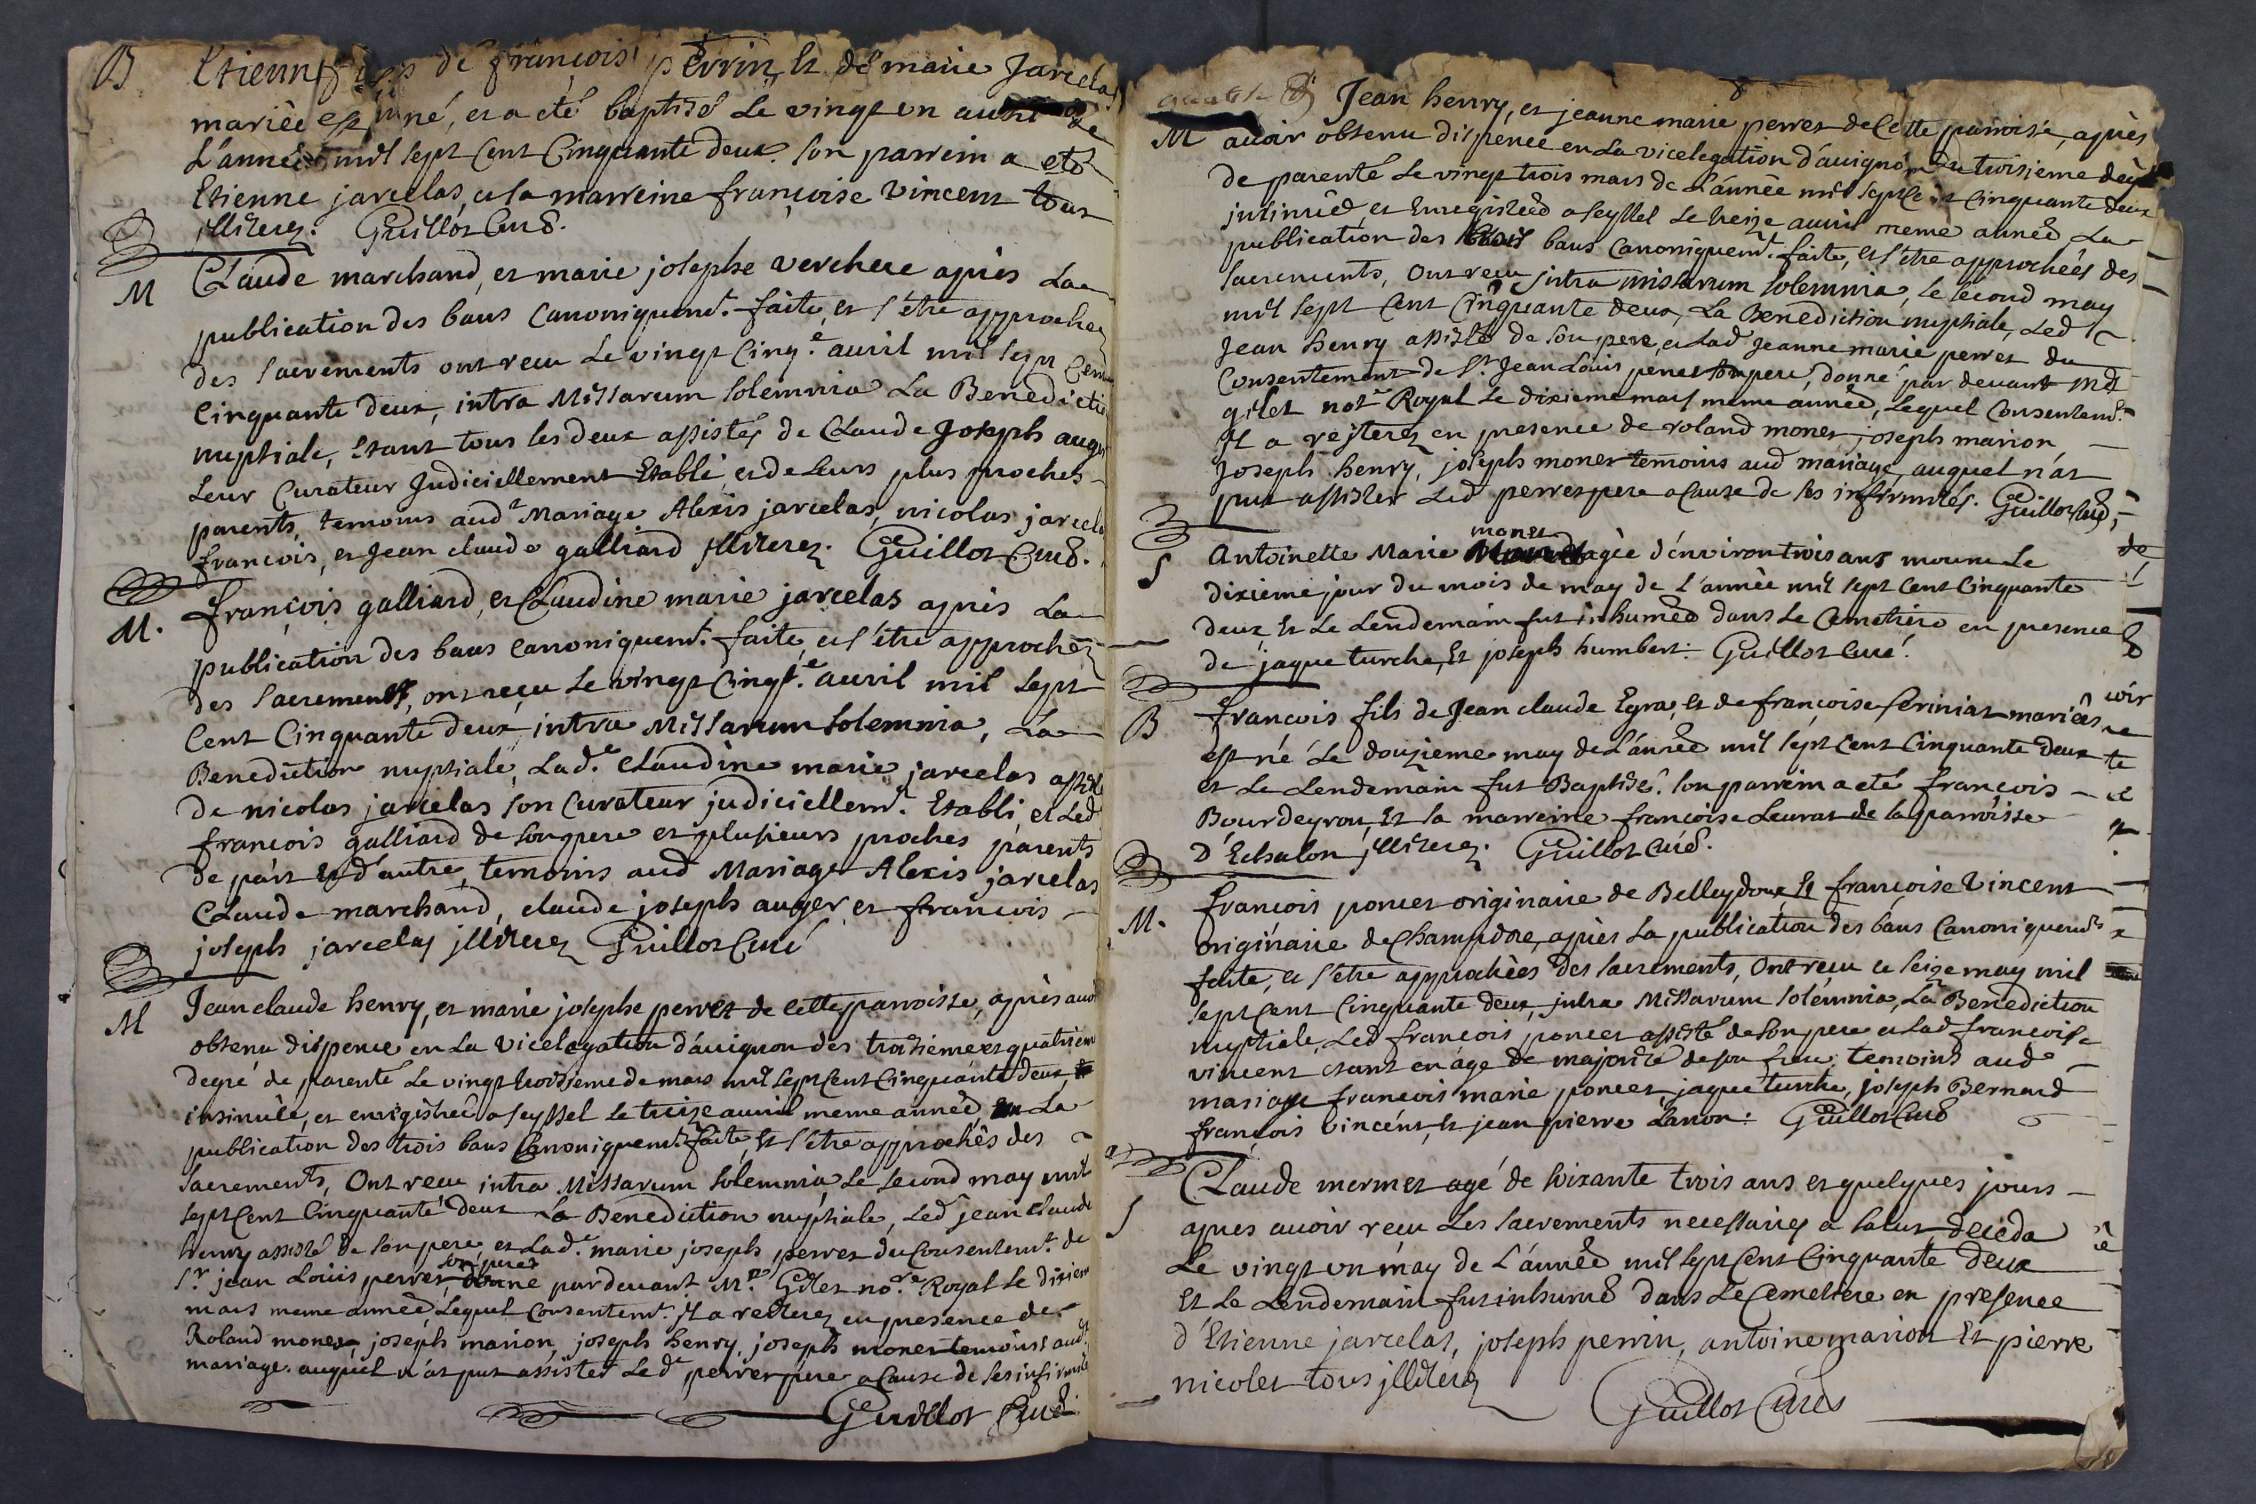 B Etienne fils de françois perrin, Et de marie Jarcelas
mariés est né, et a eté baptisé Le vingt un auril de
L'année mil sept Cent Cinquante deux. son parrein a eté
Etienne jarcelas, et sa marreine françoise Vincent tous
jlliterez. Guillot Curé.
M Claude marchand, et marie josephe verchere après La
publication des bans Canoniquemt. faite, et s'être approchez
des sacrements ont recu Le vingt Cinqe. auril mil sept Cent
Cinquante deux, intra Missarum solemnia La Benediction
nuptiale, Etant tous les deux assistés de Claude Joseph auger
Leur Curateur Judiciellement Etabli, et de Leurs plus proches
parents, temoins audt Mariage Alexis jarcelas, nicolas jarcelas
francois, et Jean claude galliard jlliterez. Guillot Curé.
M. françois galliard, et Claudine marie jarcelas après La
publication des bans canoniquemt. faite, et s'être approchéz
des sacrements, ont reçu Le vingt Cinqe. auril mil sept
Cent Cinquante deux, intra Missarum solemnia, La
Benediction nuptiale, Lade. Claudine marie jarcelas assistée
de nicolas jarcelas son Curateur judiciellemt. Etabli, et Led
francois galliard de son pere et plusieurs proches parents
de part Et d'autre, temoins aud Mariage Alexis jarcelas
Claude marchand, claude joseph auger et francois
joseph jarcelas jlliterez Guillot Curé
M Jean claude henry, et marie josephe perret de cette parroisse, après auoir
obtenu dispence en La Vicelegation d'auignon des troisieme et quatrieme
degré de parenté Le vingt troisieme de mars mil sept Cent Cinquante deux
insinuée, et enregistreé a seyssel Le treize auril meme anneé, La
publication des trois bans Canoniquemt. faite, Et s'être approchés des
sacrements, Ont recu intra Missarum solemnia, Le second may mil
sept Cent Cinquante deux La Benediction nuptiale, Led jean Claude
henry assisté de son pere, et Lade. marie joseph perret du Consentemt. de
Sr. jean Louis perret son pere donné pardeuant Mre Gilet nore. Royal Le dixieme
mars meme anneé, Lequel Consentemt. Il a reiterez en presence de
Roland monet, joseph marion, joseph henry, joseph monet temoins aud
mariage. auquel n'at put assister Led perret pere a Cause de ses infirmités
Guillot Curé
M Jean henry, et jeanne marie perret de Cette parroisse, après
auoir obtenu dispence en La vicelegation d'auignon du troisieme degré
de parenté Le vingt trois mars de L'année mil sept Cent Cinquante deux
insinueé, et Enregistreé a seyssel Le treize auril meme anneé La
publication des trois bans Canoniquemt. faite, Et s'être approcheés des
sacrements, Ont reçu intra missarum solemnia, Le second may
mil sept Cent Cinquante deux, La Benediction nuptiale, Led
Jean henry assisté de son pere, et Lad Jeanne marie perret du
Consentement de Sr. Jean Louis perret son pere, donné par deuant Me
gilet notre Royal Le dixieme mars meme anneé, Lequel Consentemt.
Il a reiterez en presence de roland monet, joseph marion,
Joseph henry, joseph monet temoins aud mariage auquel n'at
put assister Led perret pere a Cause de ses infirmités. Guillot Curé,
monet
S Antoinette Marie ageè d'enuiron trois ans mourut Le
dixieme jour du mois de may de L'année mil sept Cent Cinquante
deux Et Le Lendemain fut inhumeé dans Le Cemetiere en presence
de jaque turche, Et joseph humbert. Guillot Curé.
B françois fils de Jean claude Egra, Et de françoise seriniat mariés
est né Le douzieme may de L'anneé mil sept Cent Cinquante deux
et Le Lendemain fut Baptisé. son parrein a eté françois
Bourdeyron, Et sa marreine françoise Leurat de la parroisse
d'Echalon jlliterez. Guillot Curé.
M. francois poncet originaire de Belleydoux, Et françoise Vincent
originaire de Champdore, après La publication des bans Canoniquemt.
faite, et s'être approcheés des sacrements, Ont recu ce seize may mil
sept Cent Cinquante deux, intra Missarum solemnia, La Benediction
nuptiale, Led francois poncet assisté de son pere et Lad francoise
vincent etant en age de majorité de son frere. temoins aud
mariage francois marie poncet, jaque turche, joseph Bernard
françois Vincent, Et jean pierre Lanon. Guillot Curé
S Claude mermet agé de soixante trois ans et quelques jours
apres auoir reçu Les sacrements necessaires a salut, deceda
Le vingt un may de L'anneé mil sept Cent Cinquante deux
Et Le Lendemain fut inhumé dans Le Cemetiere en presence
d'Etienne jarcelas, joseph perrin, antoine marion Et pierre
nicolet tous jlliterez
Guillot Curé